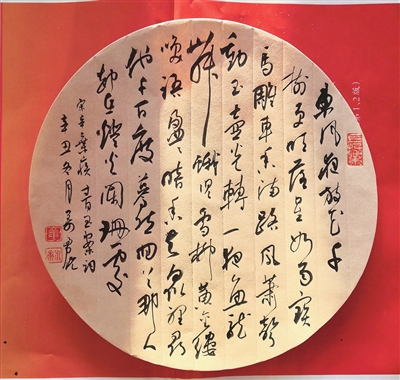 東風夜放花千
樹更吹落星如雨寶
馬雕車香滿路鳳簫聲
動玉壶光轉一夜魚龍
舞蛾兒雪柳黄金縷
笑語盈盈暗香去衆裡尋
他千百度蓦然回首那人
却在燈火闌珊處
宋辛棄疾青玉案詞
辛丑冬月
1、2版)